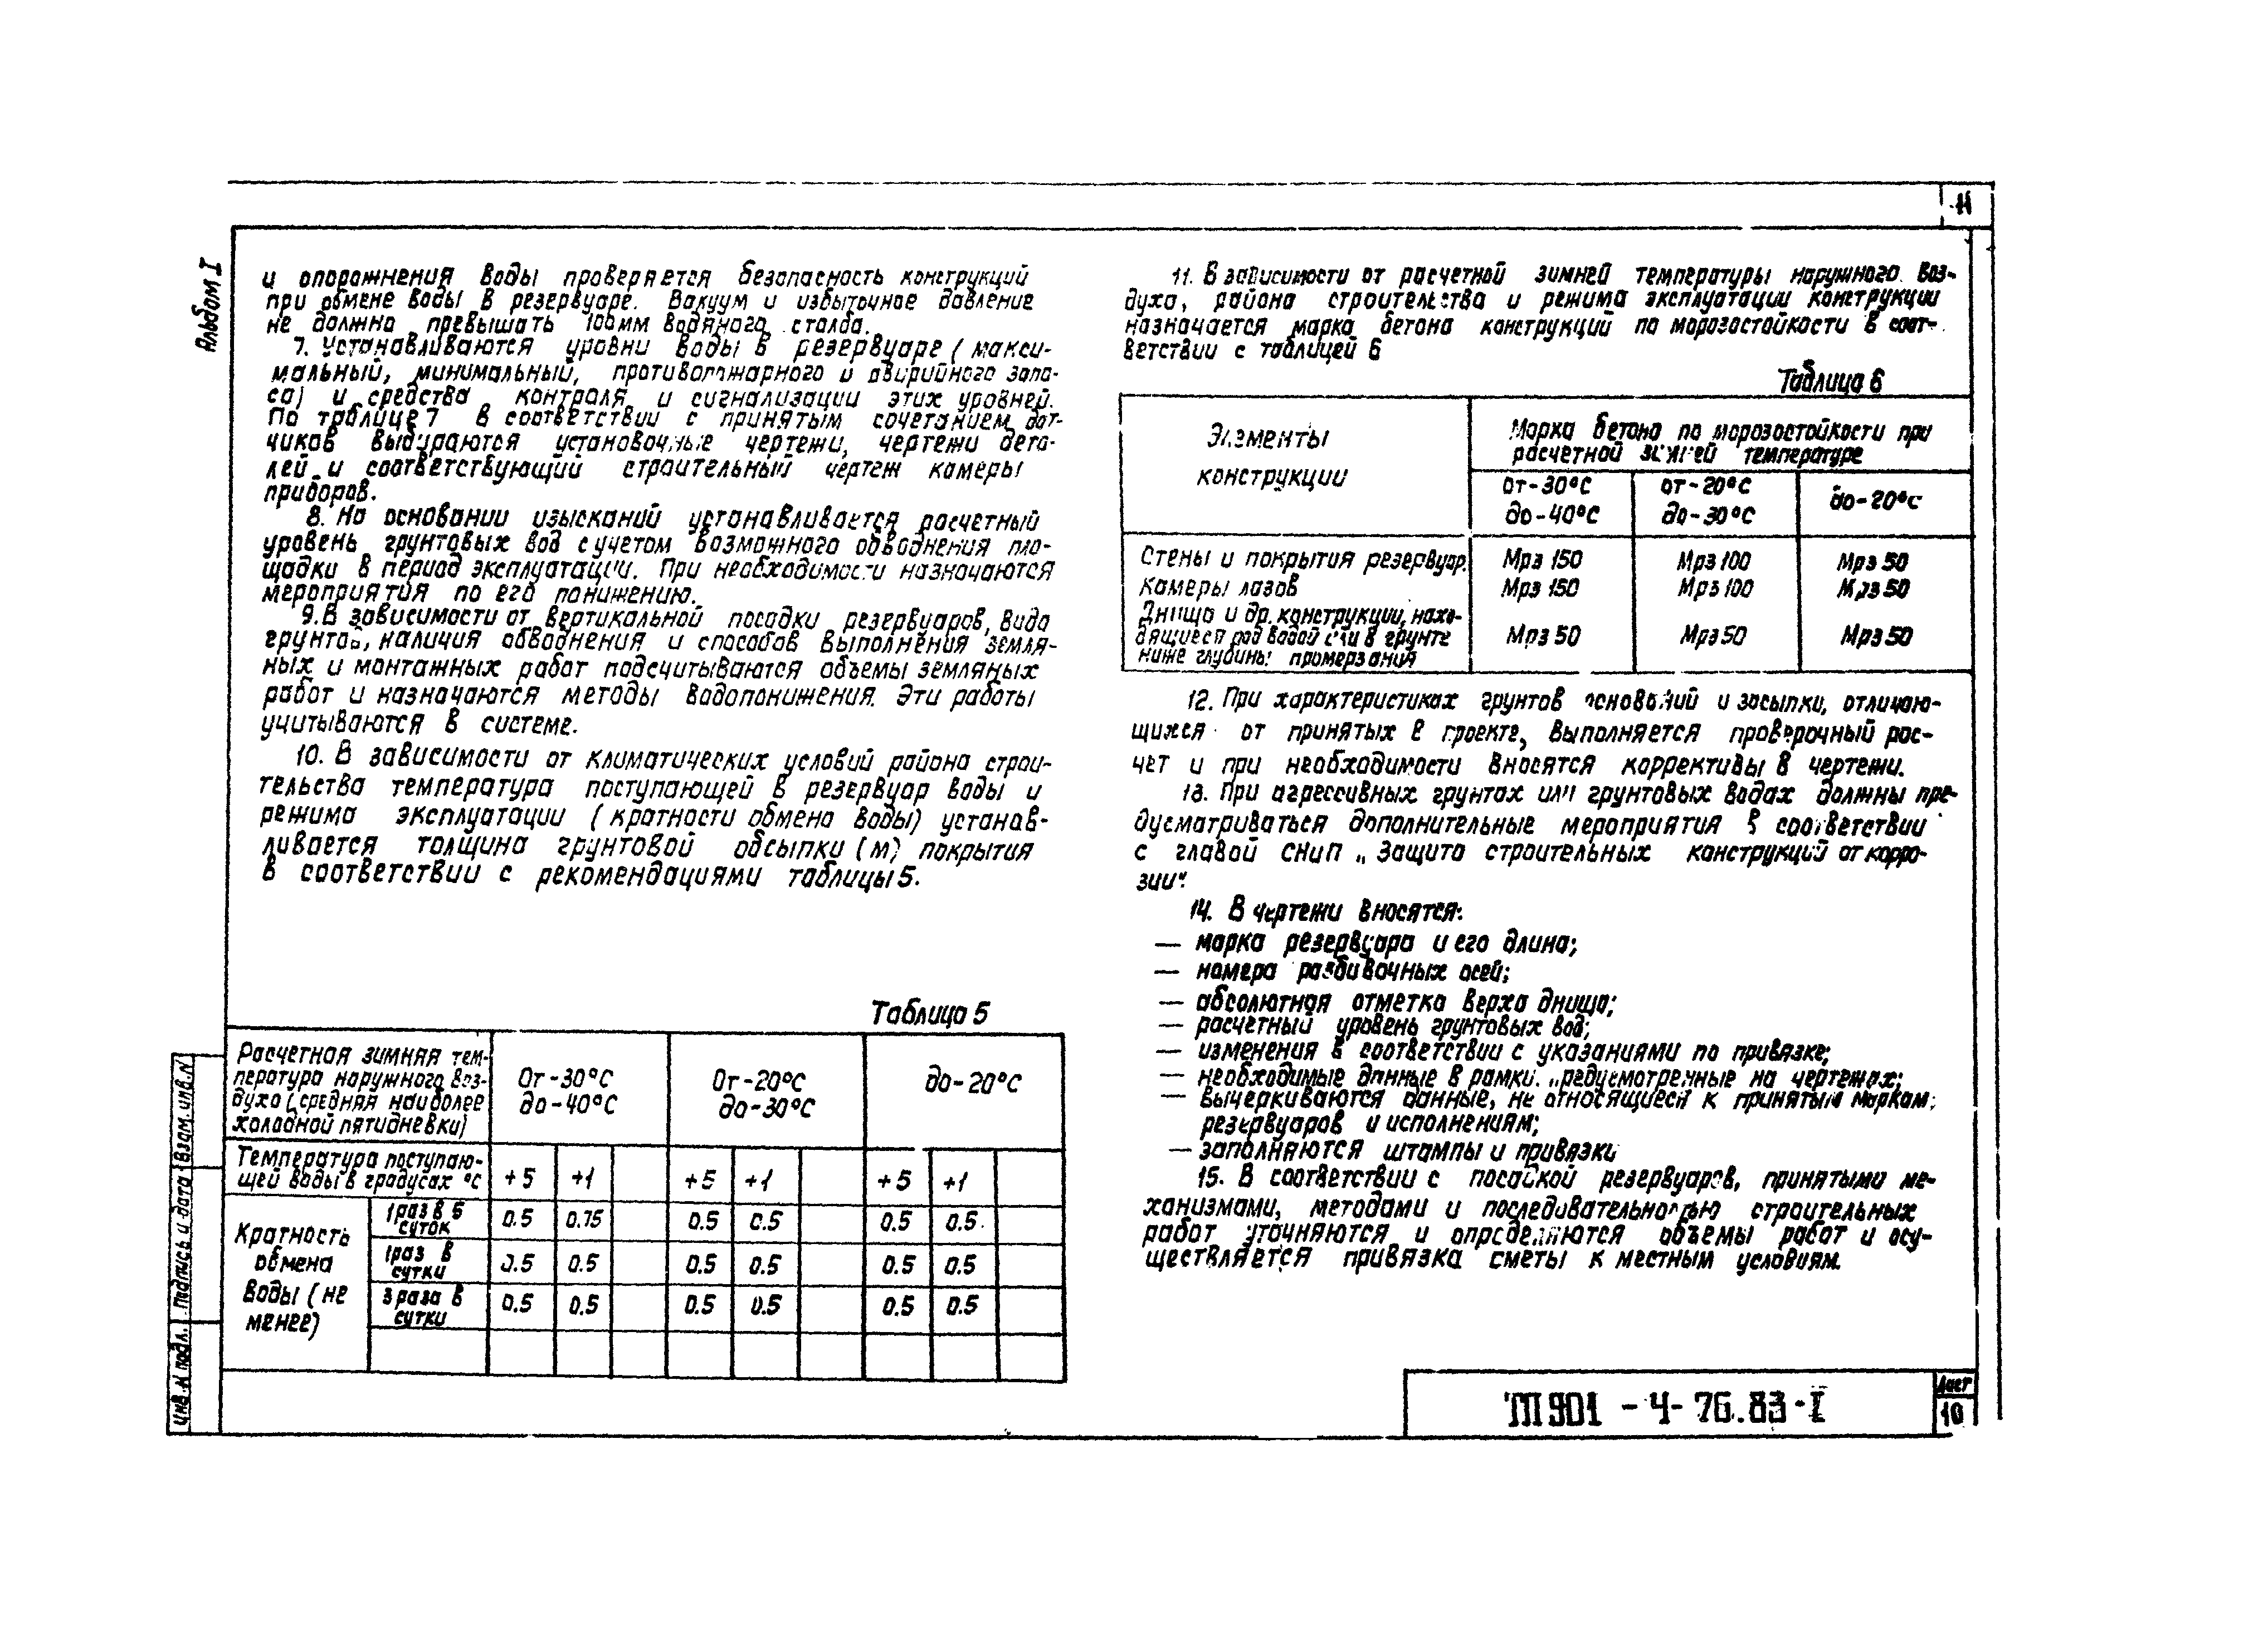 11
Альбом I
и опорожнения воды проверяется безопасность конструкций
при обмене воды в резервуаре. Вакуум и избыточное давление
не должна превышать 100мм водяного столба.
7. Устанавливаются уровни воды в резервуаре (макси-
мальный, минимальный, противопожарного и аварийного запа-
са) и средства контроля и сигнализации этих уровней.
По таблице 7 в соответствии с принятым сочетанием дат-
чиков выбираются установочные чертежи, чертежи дета-
лей и соответствующий строительный чертеж камеры
приборов.
8. На основании изысканий устанавливается расчетный
уровень грунтовых вод с учетом возможного обводнения пло-
щадки в период эксплуатации. При необходимости назначаются
мероприятия по его понижению.
9. В зависимости от вертикальной посадки резервуаров, вида
грунтов, наличия обводнения и способов выполнения земля-
ных и монтажных работ подсчитываются объемы земляных
работ и назначаются методы водопонижения. Эти работы
учитываются в системе.
10. В зависимости от климатических условий района строи-
тельства температура поступающей в резервуар воды и
режима эксплуатации (кратности обмена воды) устанав-
ливается толщина грунтовой обсыпки (м) покрытия
в соответствии с рекомендациями таблицы 5.
Таблица 5
Расчетная зимняя тем-
пература наружного воз-
духа (средняя наиболее
холодной пятидневки)
От -30°С
до -40°С
От -20°С
до -30°С
до -20°С
Температура поступаю-
щей воды в градусах °С
+5 +1 +5 +1 +5 +1
Кратность
обмена
воды (не
менее)
1раз в 5
суток
0.5 0.75 0.5 0.5 0.5 0.5
1раз в
сутки
0.5 0.5 0.5 0.5 0.5 0.5
3 раза в
сутки
0.5 0.5 0.5 0.5 0.5 0.5
11. В зависимости от расчетной зимней температуры наружного воз-
духа, района строительства и режима эксплуатации конструкции
назначается марка бетона конструкций по морозостойкости в соот-
ветствии с таблицей 6
Таблица 6
Элементы
конструкции
Марка бетона по морозостойкости при
расчетной зимней температуре
от -30°С
до -40°С
от -20°С
до -30°С
до -20°С
Стены и покрытия резервуар. Мрз 150 Мрз 100 Мрз 50
Камеры лазов Мрз 150 Мрз 100 Мрз 50
Днища и др. конструкции, нахо-
дящиеся под водой или в грунте
ниже глубины промерзания
Мрз 50 Мрз 50 Мрз 50
12. При характеристиках грунтов оснований и засыпки, отличаю-
щихся от принятых в проекте, выполняется проверочный рас-
чет и при необходимости вносятся коррективы в чертежи.
13. При агрессивных грунтах или грунтовых водах должны пре-
дусматриваться дополнительные мероприятия в соответствии
с главой СНиП „Защита строительных конструкций от корро-
зии".
14. В чертежи вносятся:
— марка резервуара и его длина;
— номера разбивочных осей;
— абсолютная отметка верха днища;
— расчетный уровень грунтовых вод;
— изменения в соответствии с указаниями по привязке;
— необходимые данные в рамки. предусмотренные на чертежах;
— вычеркиваются данные, не относящиеся к принятым маркам
резервуаров и исполнениям;
— заполняются штампы и привязки
15. В соответствии с посадкой резервуаров, принятыми ме-
ханизмами, методами и последовательностью строительных
работ уточняются и определяются объемы работ и осу-
ществляется привязка сметы к местным условиям.
Инв. N подл. Подпись и дата Взам. инв. N
ТП 901 - 4 - 76.83 - I
Лист
10